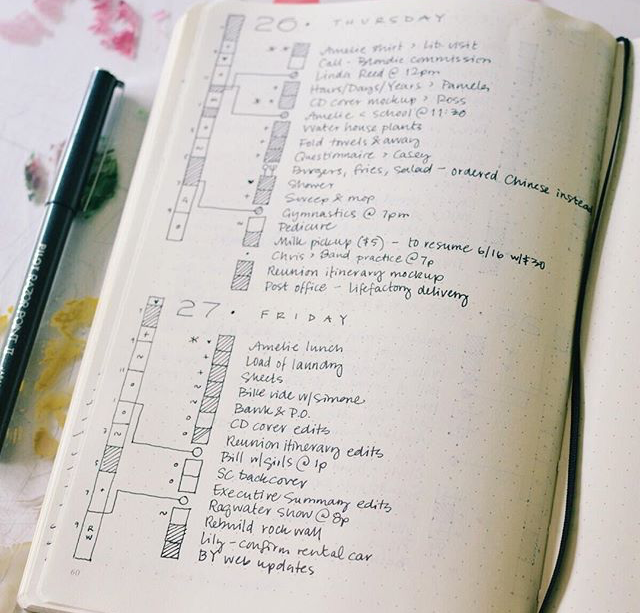 26 · THURSDAY
Amelie shirt > Lib. visit
Call - Blondie commission
Linda Reed @ 12pm
Hours/Days/Years > Pamela
CD cover mockup > Ross
Amelie < school @ 11:30
Water house plants
Fold towels & away
Questionnaire > Casey
Burgers, fries, salad - ordered Chinese instead
Shower
Sweep & mop
Gymnastics @ 7pm
Pedicure
Milk pickup ($5) - to resume 6/16 w/$30
Chris > Band practice @ 7p
Reunion itinerary mockup
Post office - Lifefactory delivery
27 · FRIDAY
Amelie lunch
Load of laundry
Sheets
Bike ride w/Simone
Bank & P.O.
CD cover edits
Reunion itinerary edits
Bill w/girls @ 1p
SC backcover
Executive Summary edits
Ragwater show @ 8p
Rebuild rock wall
Lily - confirm rental car
BY web updates
RW
60